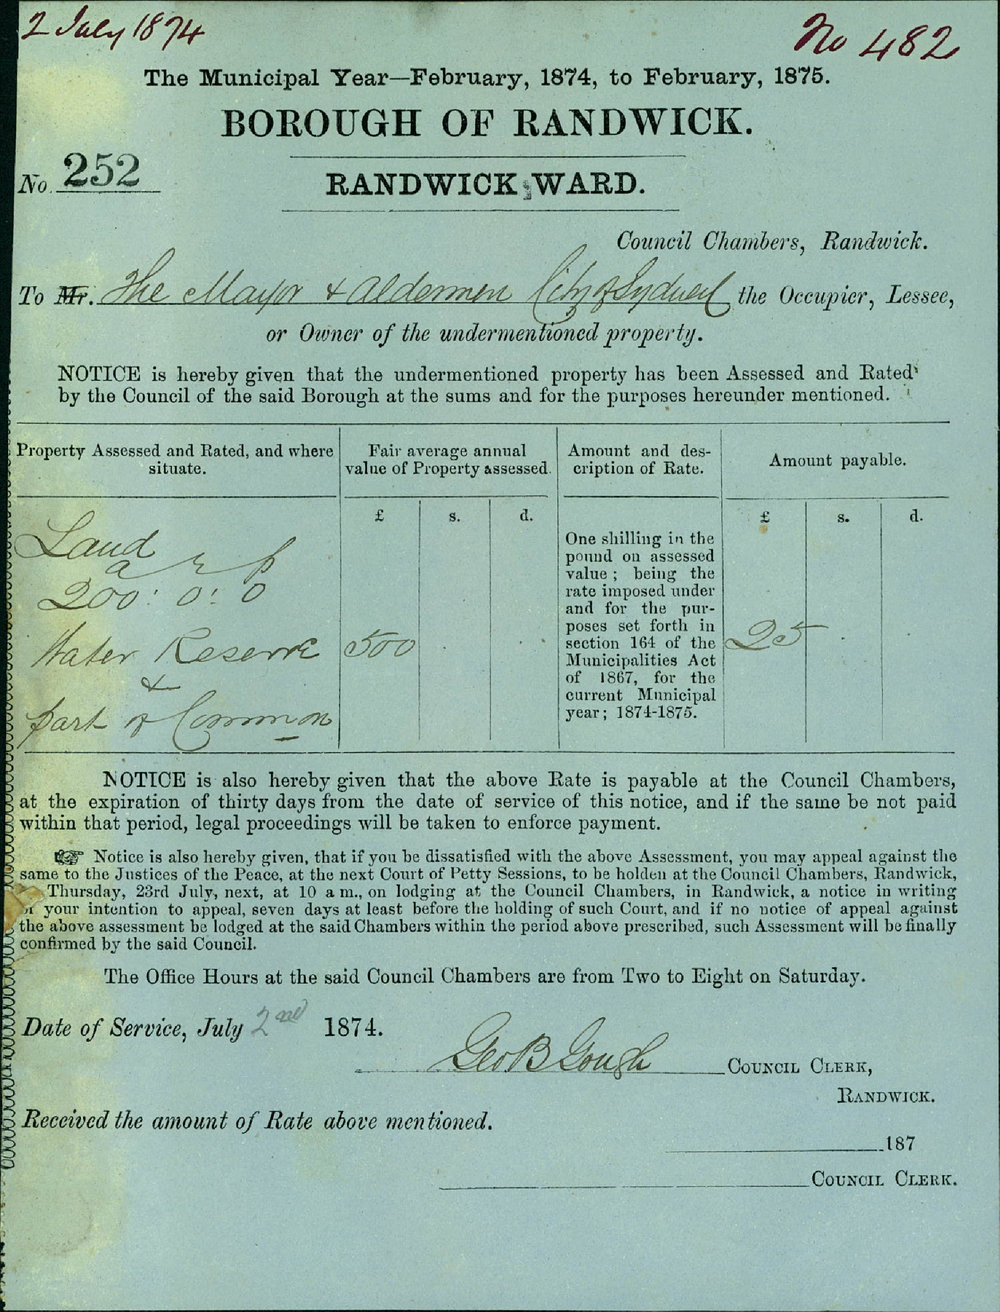 2 July 1874
No 482
The Municipal Year—February, 1874, to February, 1875.
BOROUGH OF RANDWICK.
No. 252
RANDWICK WARD.
Council Chambers, Randwick.
To Mr. The Mayor & Aldermen City of Sydney the Occupier, Lessee,
or Owner of the undermentioned property.
NOTICE is hereby given that the undermentioned property has been Assessed and Rated
by the Council of the said Borough at the sums and for the purposes hereunder mentioned.
Property Assessed and Rated, and where
situate.
Fair average annual
value of Property assessed.
Amount and des-
cription of Rate.
Amount payable.
£ s. d.
£ s. d.
Land
a r p
200 : 0 : 0
Water Reserve
&
part of Common
500
One shilling in the
pound on assessed
value ; being the
rate imposed under
and for the pur-
poses set forth in
section 164 of the
Municipalities Act
of 1867, for the
current Municipal
year ; 1874-1875.
25
NOTICE is also hereby given that the above Rate is payable at the Council Chambers,
at the expiration of thirty days from the date of service of this notice, and if the same be not paid
within that period, legal proceedings will be taken to enforce payment.
☞ Notice is also hereby given, that if you be dissatisfied with the above Assessment, you may appeal against the
same to the Justices of the Peace, at the next Court of Petty Sessions, to be holden at the Council Chambers, Randwick,
Thursday, 23rd July, next, at 10 a m., on lodging at the Council Chambers, in Randwick, a notice in writing
of your intention to appeal, seven days at least before the holding of such Court, and if no notice of appeal against
the above assessment be lodged at the said Chambers within the period above prescribed, such Assessment will be finally
confirmed by the said Council.
The Office Hours at the said Council Chambers are from Two to Eight on Saturday.
Date of Service, July 2nd 1874.
Geo B Gough COUNCIL CLERK,
RANDWICK.
Received the amount of Rate above mentioned.
187
COUNCIL CLERK.